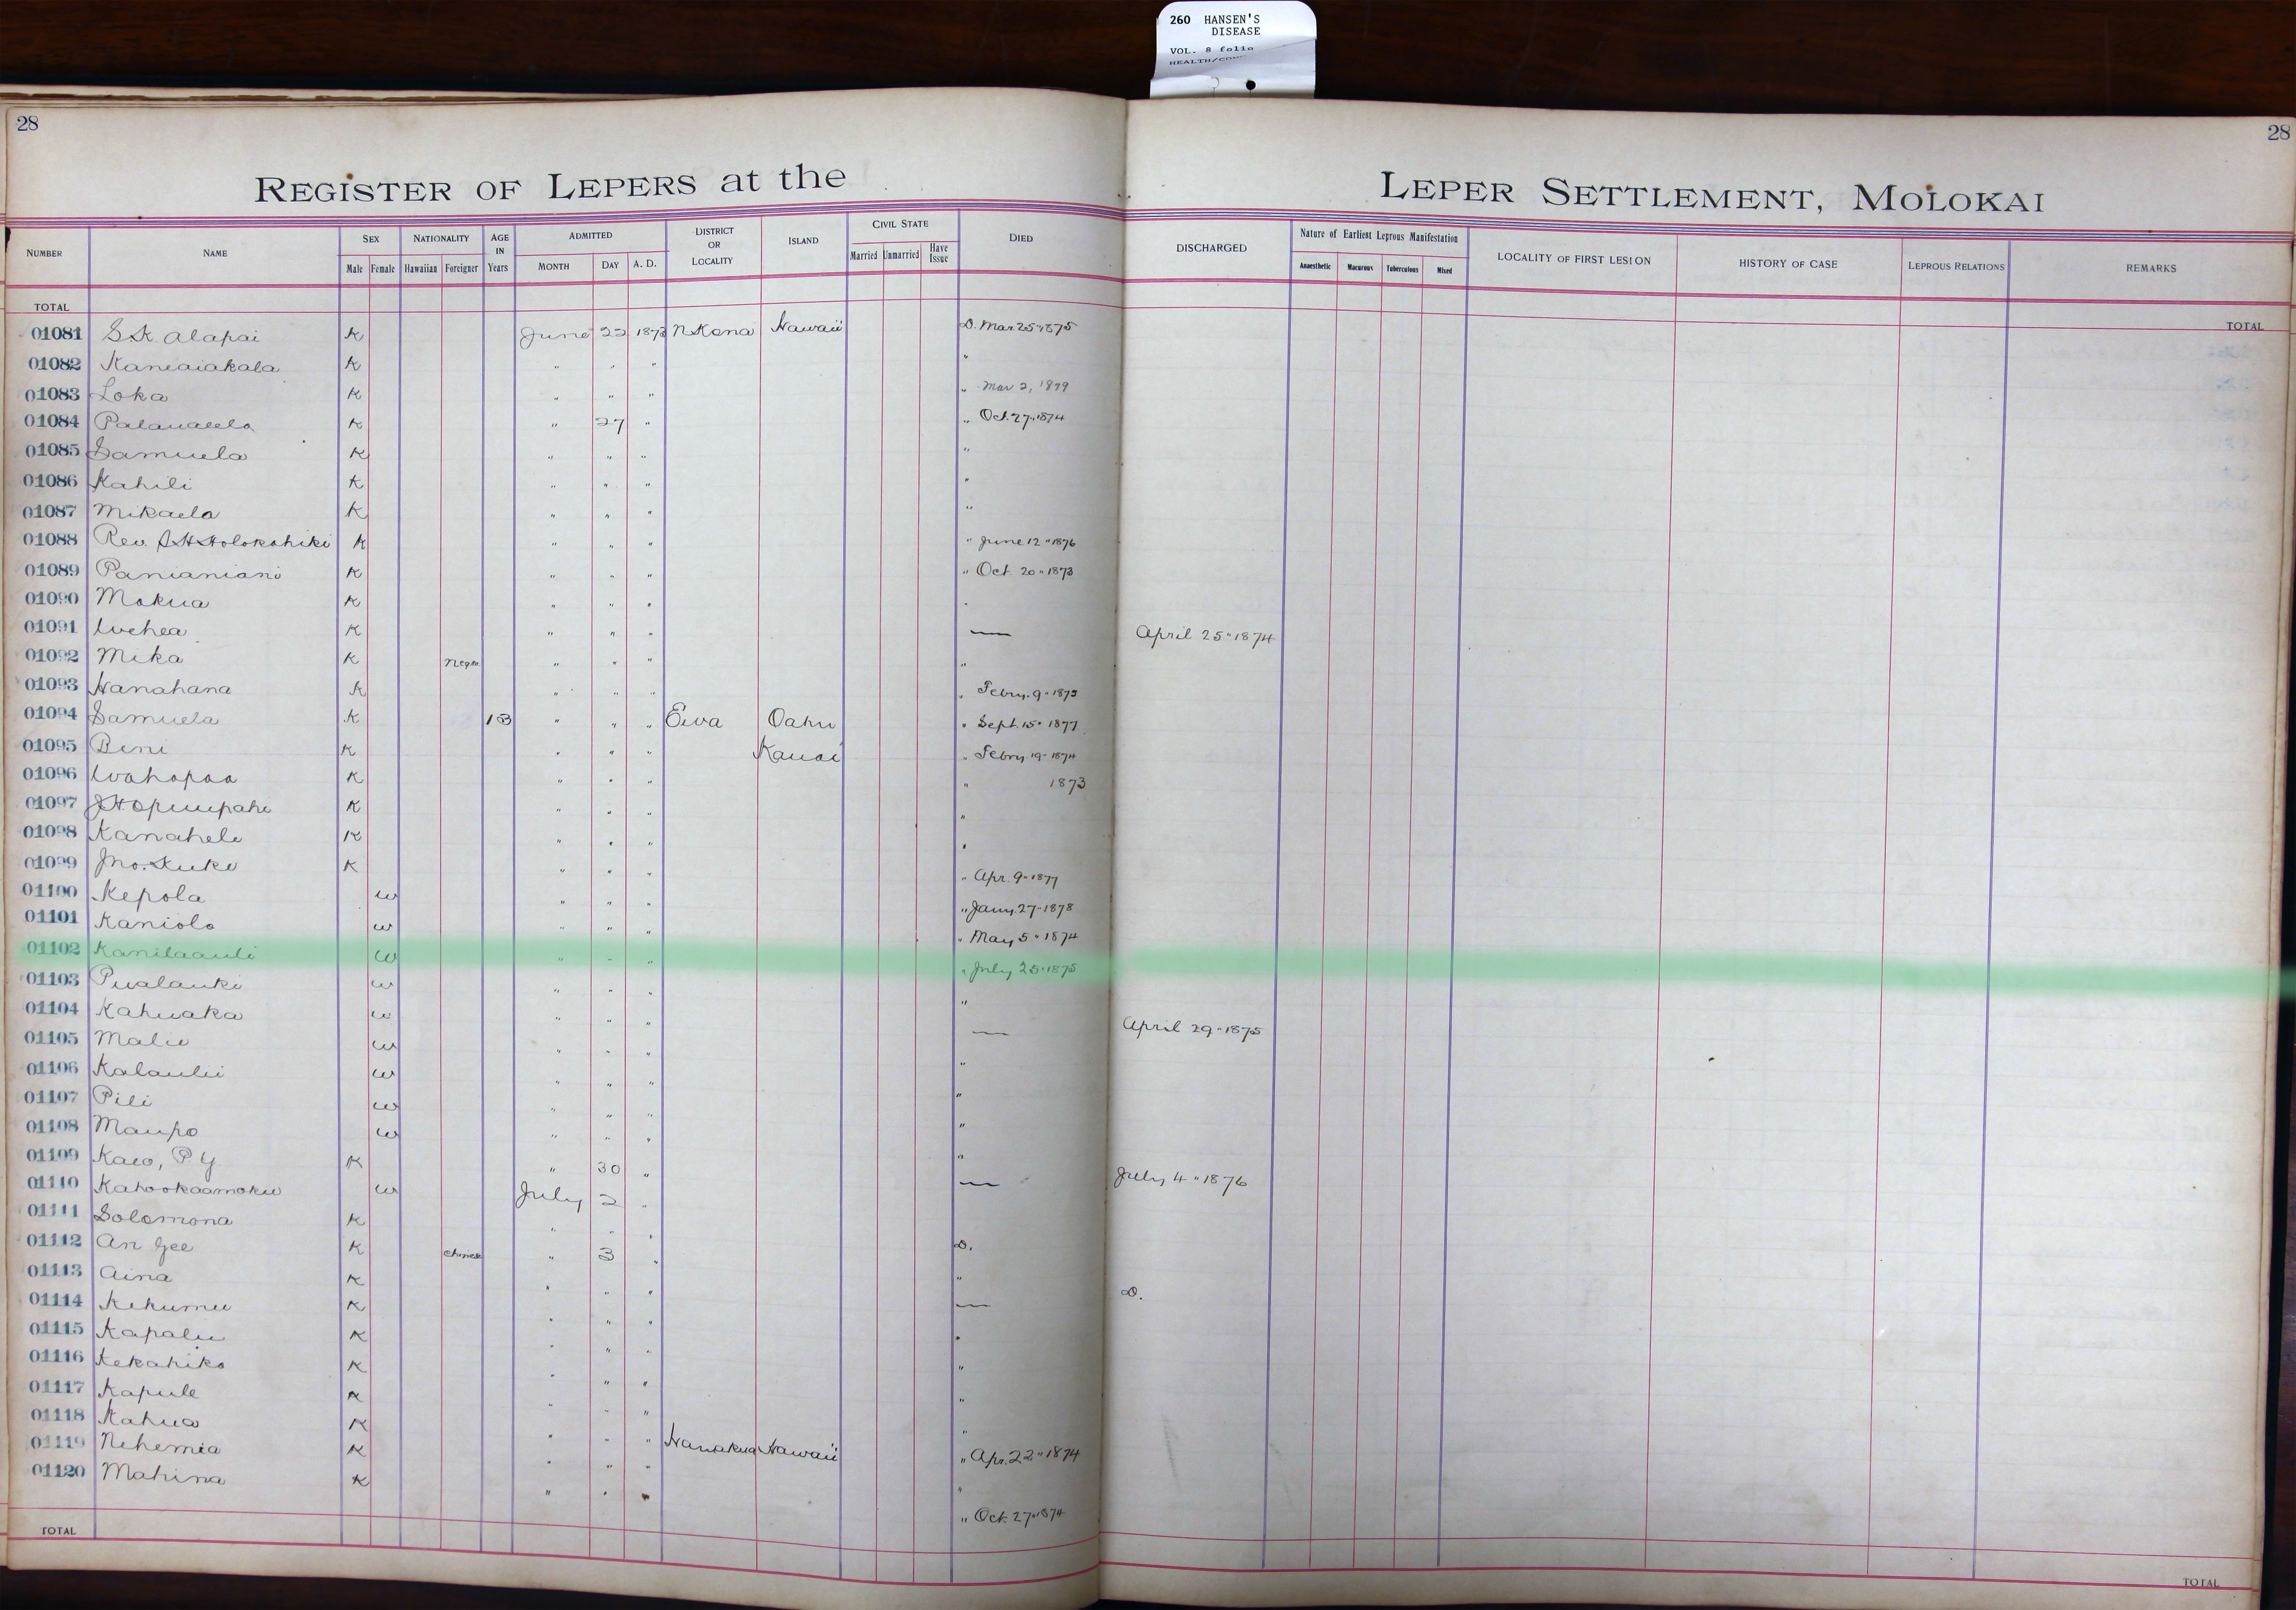 260 HANSEN'S
DISEASE
VOL. 8 folio
28
28
REGISTER OF LEPERS at the LEPER SETTLEMENT, MOLOKAI
NUMBER NAME SEX Male Female NATIONALITY Hawaiian Foreigner AGE IN Years ADMITTED MONTH DAY A. D. DISTRICT OR LOCALITY ISLAND CIVIL STATE Married Unmarried Have Issue DIED DISCHARGED Nature of Earliest Leprous Manifestation Anaesthetic Macurous Tuberculous Mixed LOCALITY OF FIRST LESION HISTORY OF CASE LEPROUS RELATIONS REMARKS
TOTAL TOTAL
01081 S.K. Alapai K June 22 1873 N Kona Hawaii D. Mar. 25 " 1875
01082 Kaneaiakala K " " " "
01083 Loka K " " " " Mar 2, 1879
01084 Palaualelo K " 27 " " Oct. 27 " 1874
01085 Samuela K " " " "
01086 Kahili K " " " "
01087 Mikaela K " " " "
01088 Rev. S H Holokahiki K " " " " June 12 " 1876
01089 Panianiani K " " " " Oct. 20 " 1873
01090 Mokua K " " " "
01091 Wehea K " " " — April 25 " 1874
01092 Mika K Negro " " " "
01093 Hanahana K " " " " Febry. 9 " 1875
01094 Samuela K 13 " " " Ewa Oahu " Sept. 15 " 1877
01095 Beni K " " " Kauai " Febry 19 " 1874
01096 Wahapaa K " " " " 1873
01097 J H Opuupahi K " " " "
01098 Kanahele K " " " "
01099 Jno. Kuke K " " " " Apr. 9 " 1877
01100 Kepola W " " " " Jany. 27 " 1878
01101 Kaniolo W " " " " May 5 " 1874
01102 Kanilaauli W " " " " July 25 " 1875
01103 Pualauki W " " " "
01104 Kahuaka W " " " — April 29 " 1875
01105 Malie W " " " "
01106 Kalaulii W " " " "
01107 Pili W " " " "
01108 Maupo W " " " "
01109 Kaeo, P Y K " 30 " — July 4 " 1876
01110 Kahookaamoku W July 2 "
01111 Solomona K " " " D.
01112 An Gee K Chinese " 3 " "
01113 Aina K " " " — D.
01114 Kekumu K " " " "
01115 Kapalu K " " " "
01116 Kekahiko K " " " "
01117 Kapule K " " " "
01118 Kahua K " " " Hamakua Hawaii " Apr. 22 " 1874
01119 Nehemia K " " " "
01120 Mahina K " " " " Oct. 27 " 1874
TOTAL TOTAL